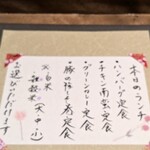 本日のランチ
・ハンバーグ定食
・チキン南蛮定食
・グリーンカレー定食
・豚の角煮定食
※白米
雑穀米(大・中・小)
お選びいただけます